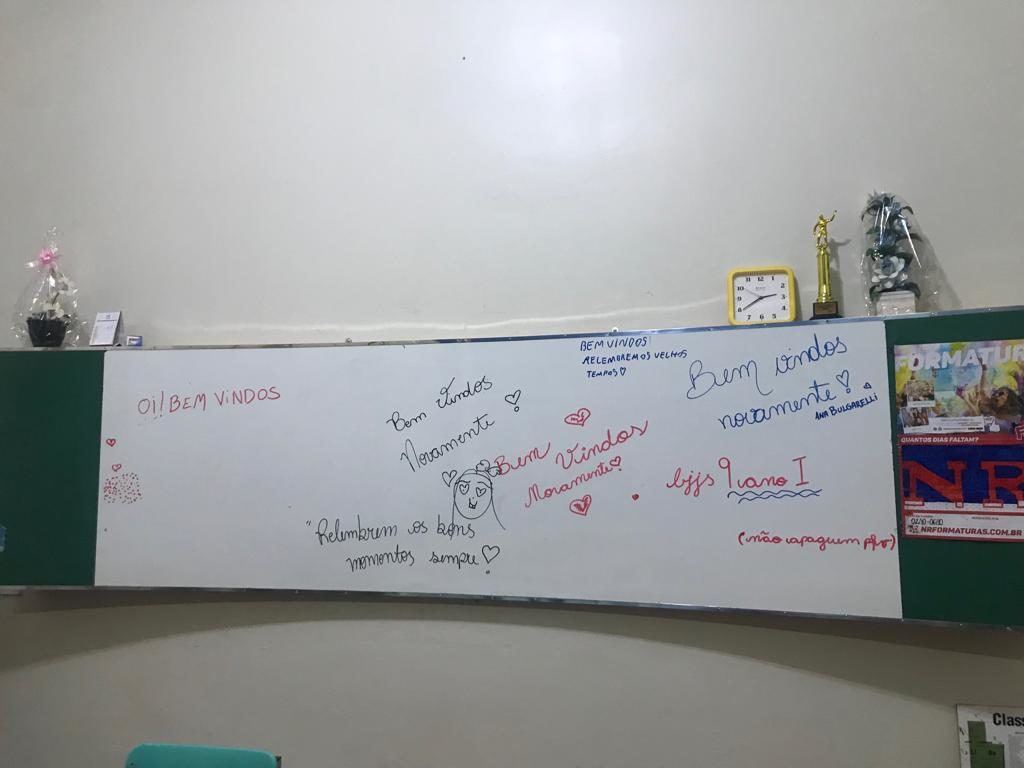 Oi! BEM VINDOS
Bem Vindos
Novamente!
"Relembrem os bons
momentos sempre!
BEM VINDOS!
RELEMBREMOS VELHOS
TEMPOS
Bem Vindos
Novamente!
Bem vindos
novamente!
ANA BULGARELLI
bjjs 9 ano I
(não apaguem pfv)
FORMATUR
QUANTOS DIAS FALTAM?
NR
NRFORMATURAS.COM.BR
Class
10
9
8
7
6
5
4
3
2
1
12
11